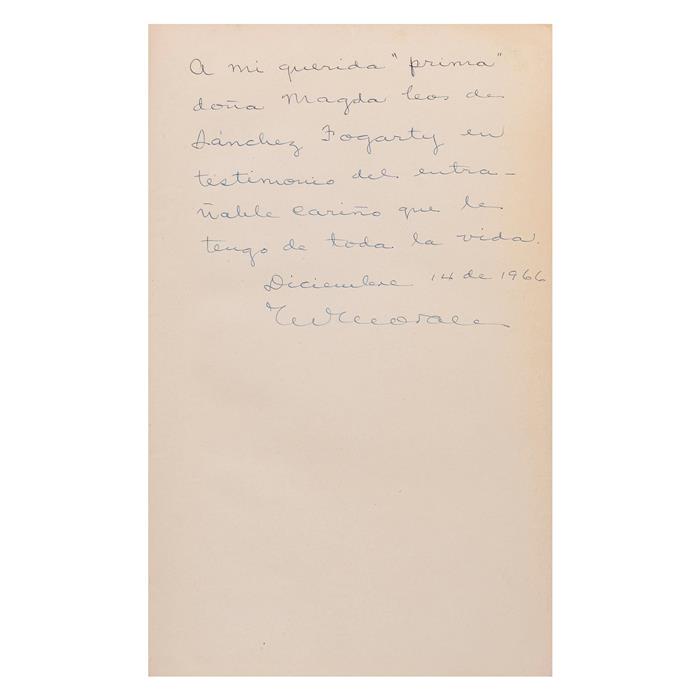 A mi querida "prima"
doña Magda Leos de
Sánchez Fogarty en
testimonio del entra-
ñable cariño que le
tengo de toda la vida.
Diciembre 14 de 1966